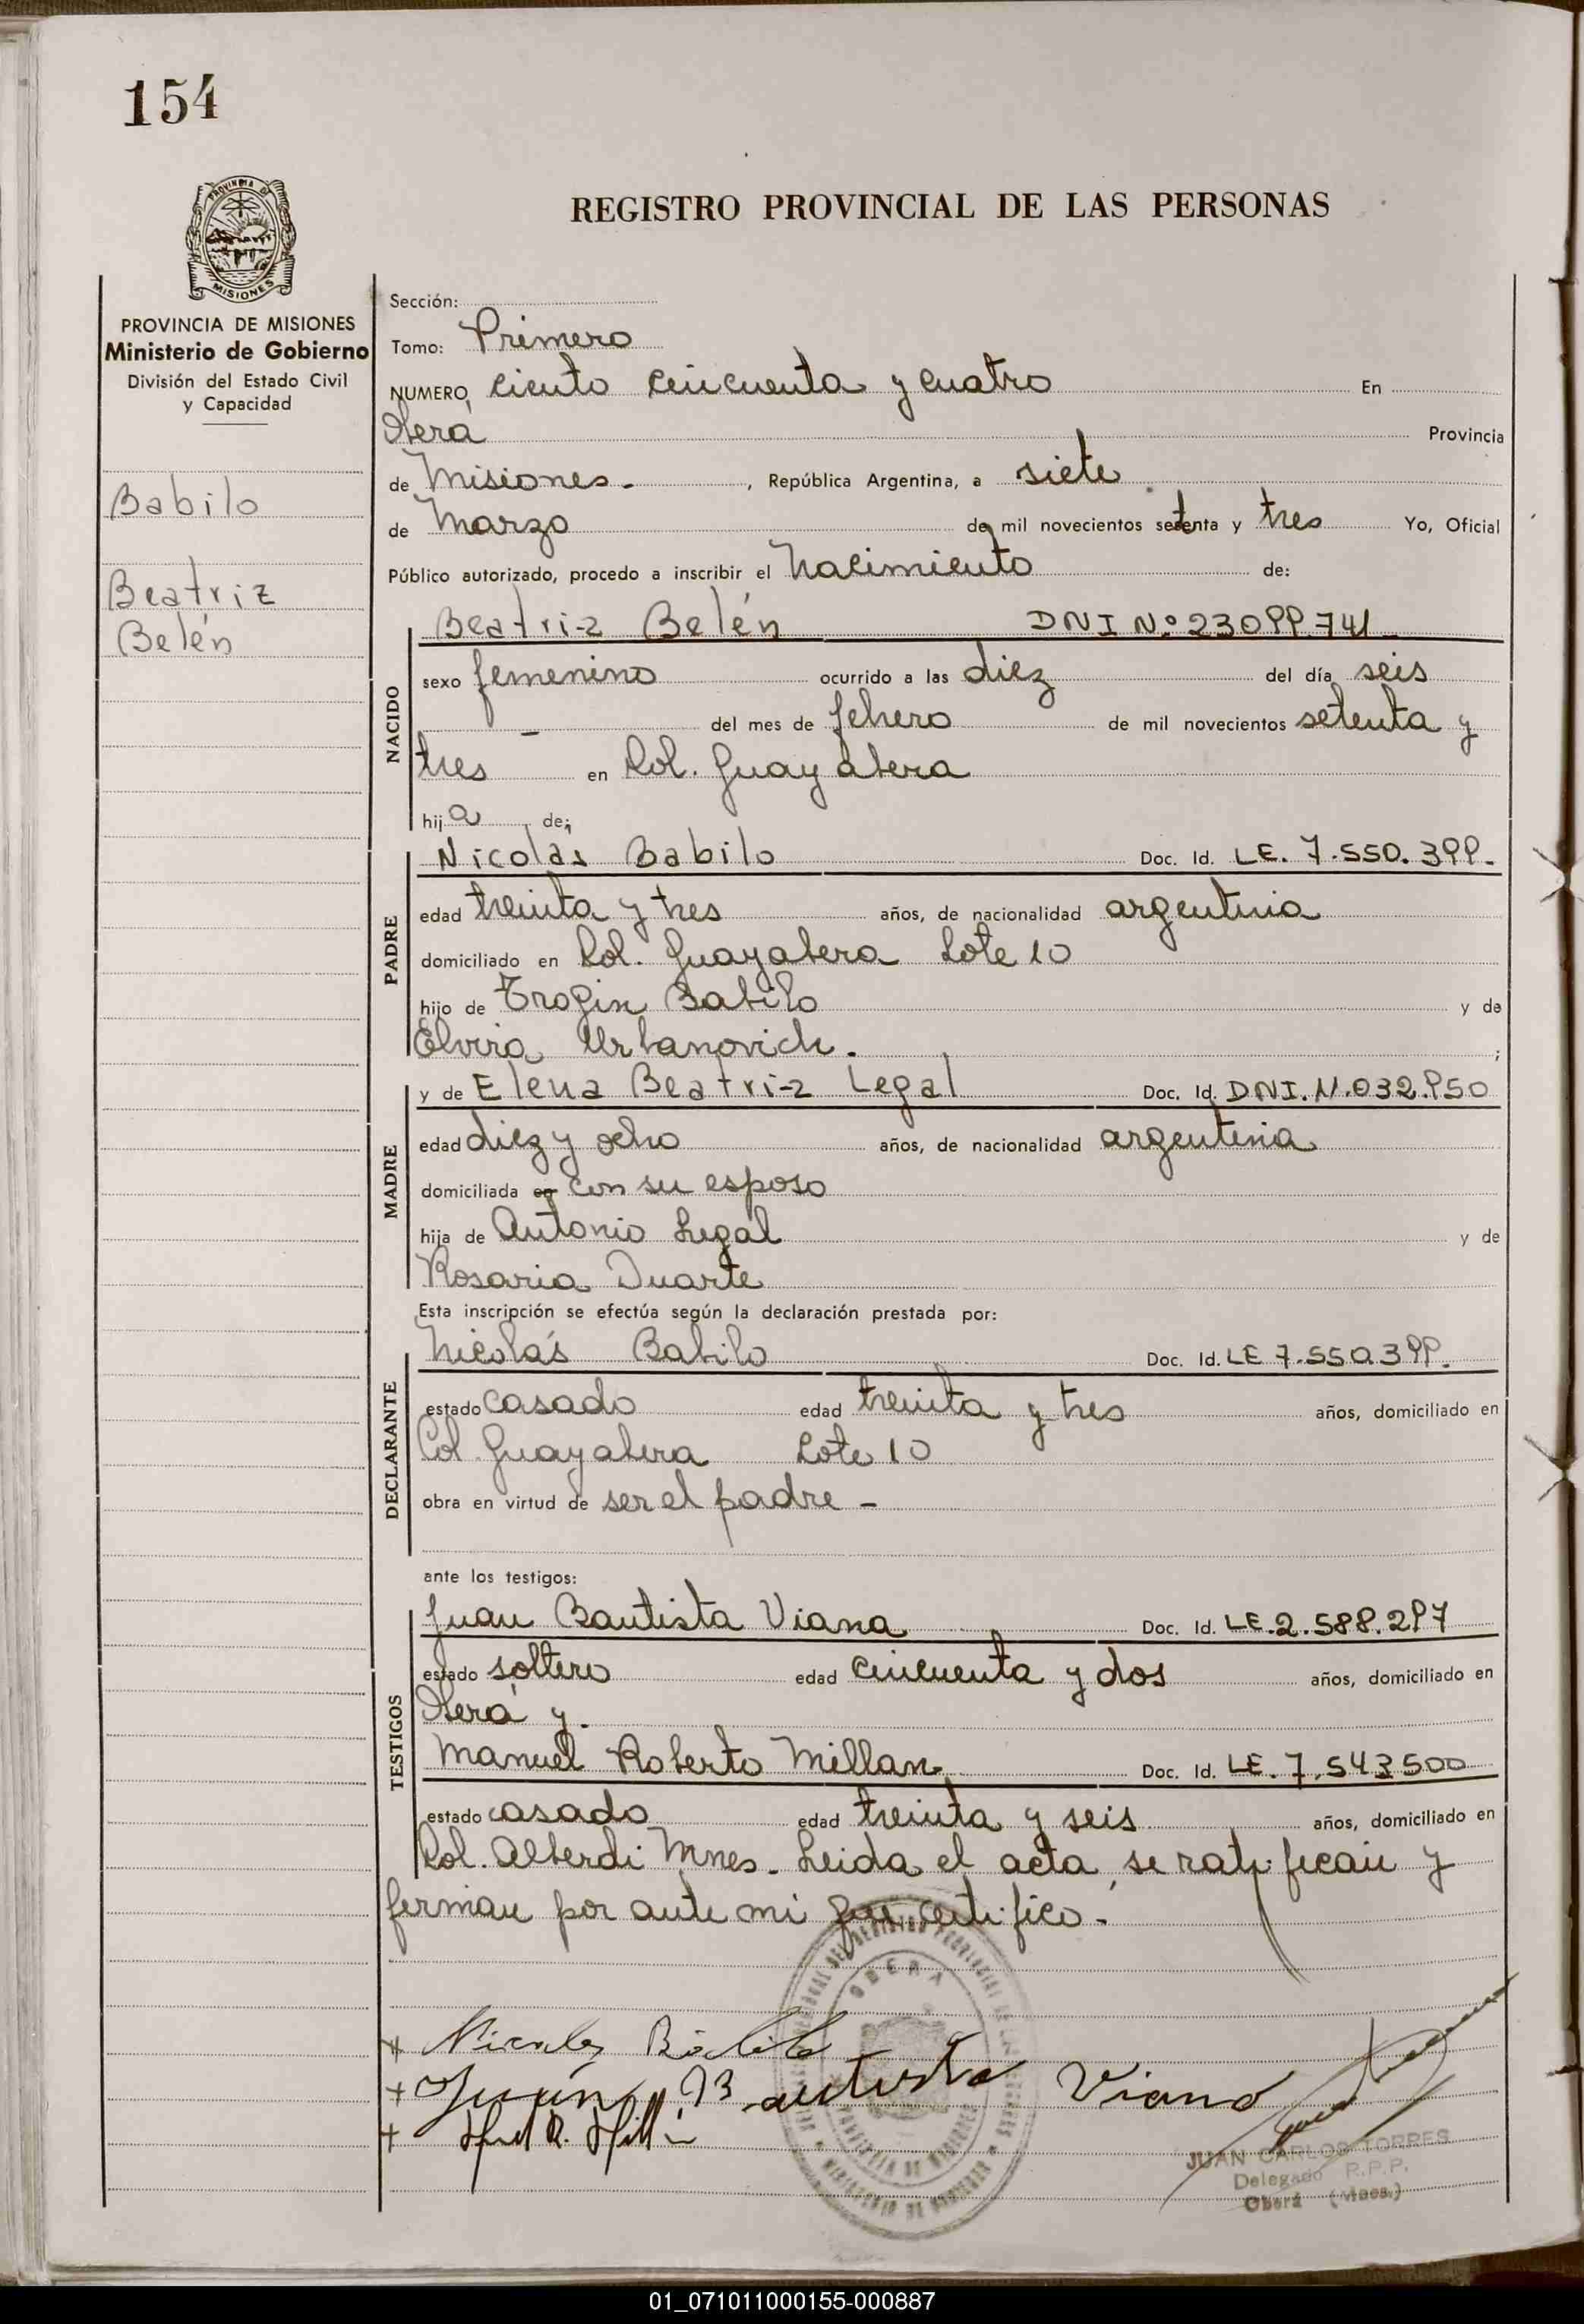 154
REGISTRO PROVINCIAL DE LAS PERSONAS
PROVINCIA DE MISIONES
Ministerio de Gobierno
División del Estado Civil
y Capacidad
Babilo
Beatriz
Belén
Sección:
Tomo: Primero
NUMERO, ciento cincuenta y cuatro En
Oberá Provincia
de Misiones. , República Argentina, a siete
de Marzo de mil novecientos setenta y tres Yo, Oficial
Público autorizado, procedo a inscribir el Nacimiento de:
NACIDO
Beatriz Belén DNI Nº 23099741
sexo femenino ocurrido a las diez del día seis
- del mes de febrero de mil novecientos setenta y
tres en Col. Guayabera
hija de;
PADRE
Nicolás Babilo Doc. Id. LE. 7.550.399.
edad treinta y tres años, de nacionalidad argentina
domiciliado en Col. Guayabera Lote 10
hijo de Trofin Babilo y de
Elvira Urbanovich. ;
MADRE
y de Elena Beatriz Legal Doc. Id. DNI. 11.032.950
edad diez y ocho años, de nacionalidad argentina
domiciliada en con su esposo
hija de Antonio Legal y de
Rosaria Duarte
Esta inscripción se efectúa según la declaración prestada por:
DECLARANTE
Nicolás Babilo Doc. Id. LE 7.550.399.
estado casado edad treinta y tres años, domiciliado en
Col. Guayabera Lote 10
obra en virtud de ser el padre -
ante los testigos:
TESTIGOS
Juan Bautista Viana Doc. Id. LE. 2.588.297
estado soltero edad cincuenta y dos años, domiciliado en
Oberá y.
Manuel Roberto Millan Doc. Id. LE. 7.543500
estado casado edad treinta y seis años, domiciliado en
Col. Alberdi Mnes. Leida el acta, se ratifican y
firman por ante mi que certifico.
Nicolas Babilo
Juan Bautista Viana
OBERA
JUAN CARLOS TORRES
Delegado R.P.P.
Oberá (Mnes.)
01_071011000155-000887